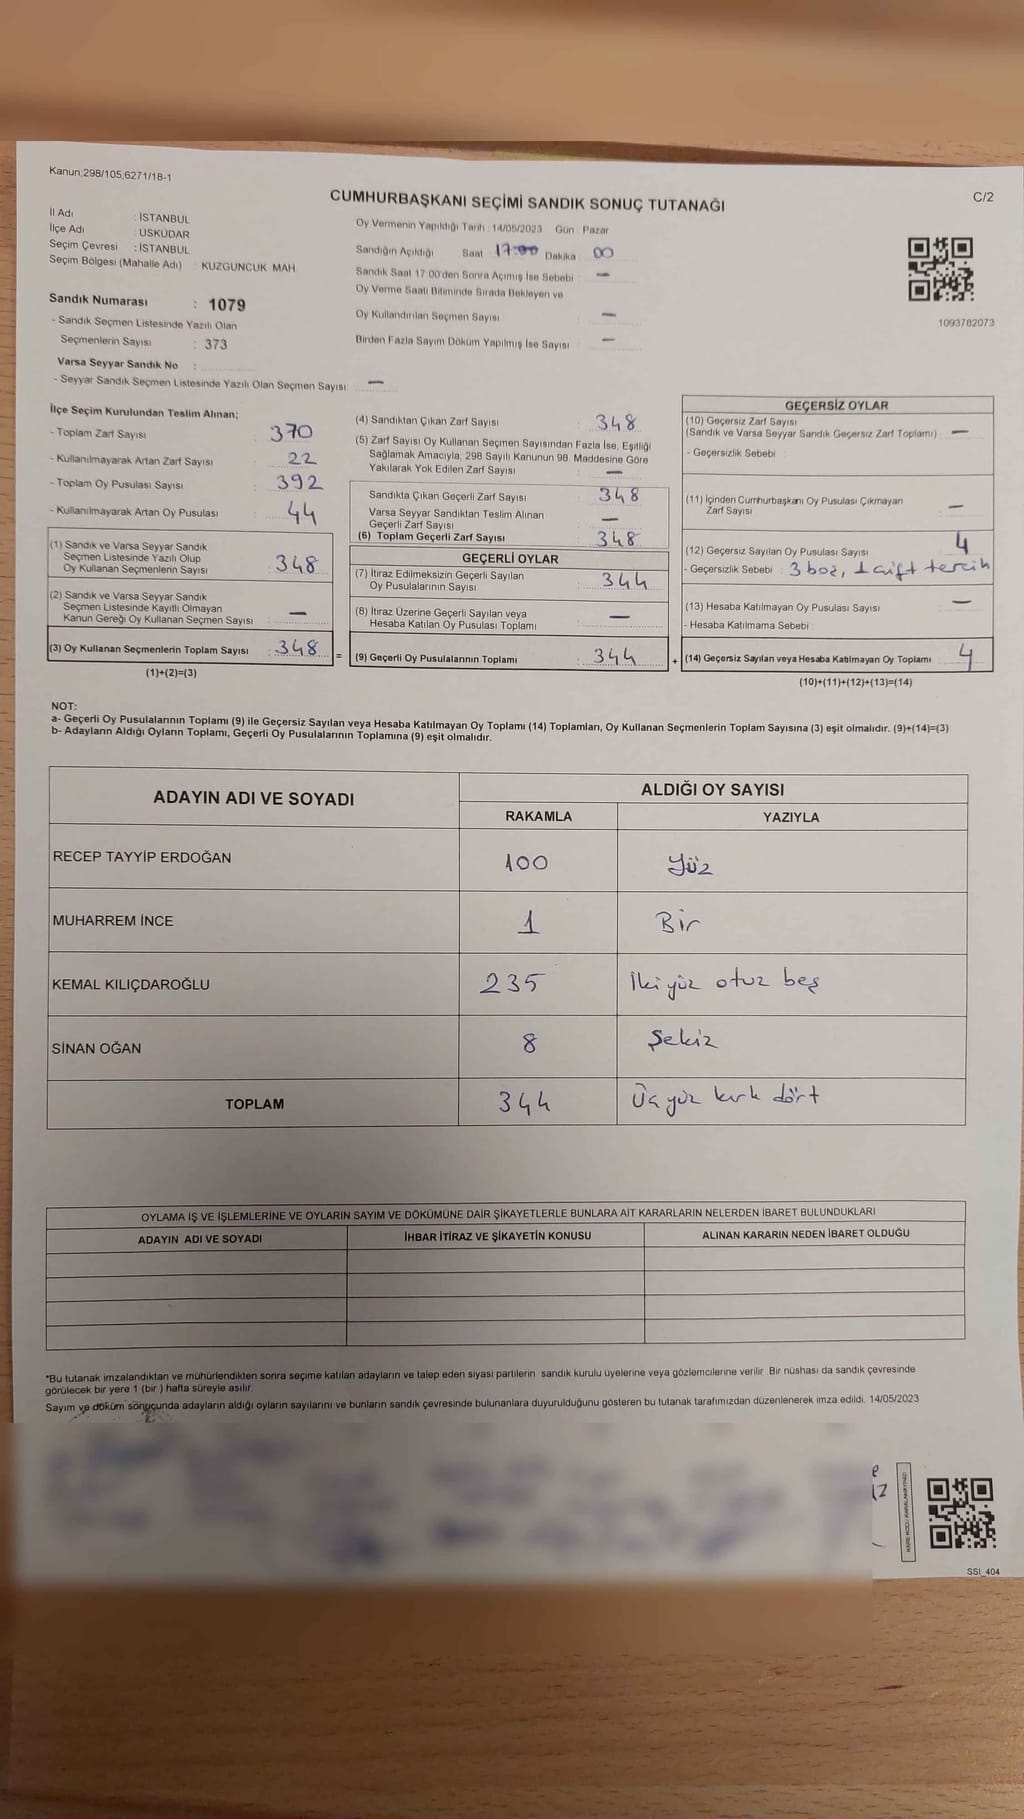 Kanun;298/105,6271/18-1
CUMHURBAŞKANI SEÇİMİ SANDIK SONUÇ TUTANAĞI
C/2
İl Adı : İSTANBUL
İlçe Adı : ÜSKÜDAR
Seçim Çevresi : İSTANBUL
Seçim Bölgesi (Mahalle Adı) : KUZGUNCUK MAH
Sandık Numarası : 1079
- Sandık Seçmen Listesinde Yazılı Olan
Seçmenlerin Sayısı : 373
Varsa Seyyar Sandık No :
- Seyyar Sandık Seçmen Listesinde Yazılı Olan Seçmen Sayısı: —
Oy Vermenin Yapıldığı Tarih : 14/05/2023 Gün : Pazar
Sandığın Açıldığı Saat 17:00 Dakika 00
Sandık Saat 17:00'den Sonra Açımış İse Sebebi : —
Oy Verme Saati Bitiminde Sırada Bekleyen ve
Oy Kullandırılan Seçmen Sayısı : —
Birden Fazla Sayım Döküm Yapılmış İse Sayısı : —
1093762073
İlçe Seçim Kurulundan Teslim Alınan;
- Toplam Zarf Sayısı : 370
- Kullanılmayarak Artan Zarf Sayısı : 22
- Toplam Oy Pusulası Sayısı : 392
- Kullanılmayarak Artan Oy Pusulası : 44
(1) Sandık ve Varsa Seyyar Sandık
Seçmen Listesinde Yazılı Olup
Oy Kullanan Seçmenlerin Sayısı : 348
(2) Sandık ve Varsa Seyyar Sandık
Seçmen Listesinde Kayıtlı Olmayan
Kanun Gereği Oy Kullanan Seçmen Sayısı : —
(3) Oy Kullanan Seçmenlerin Toplam Sayısı : 348
(1)+(2)=(3)
(4) Sandıktan Çıkan Zarf Sayısı : 348
(5) Zarf Sayısı Oy Kullanan Seçmen Sayısından Fazla İse, Eşitliği
Sağlamak Amacıyla, 298 Sayılı Kanunun 98. Maddesine Göre
Yakılarak Yok Edilen Zarf Sayısı : —
Sandıkta Çıkan Geçerli Zarf Sayısı : 348
Varsa Seyyar Sandıktan Teslim Alınan
Geçerli Zarf Sayısı : —
(6) Toplam Geçerli Zarf Sayısı : 348
GEÇERLİ OYLAR
(7) İtiraz Edilmeksizin Geçerli Sayılan
Oy Pusulalarının Sayısı : 344
(8) İtiraz Üzerine Geçerli Sayılan veya
Hesaba Katılan Oy Pusulası Toplamı : —
= (9) Geçerli Oy Pusulalarının Toplamı : 344
GEÇERSİZ OYLAR
(10) Geçersiz Zarf Sayısı
(Sandık ve Varsa Seyyar Sandık Geçersiz Zarf Toplamı) : —
- Geçersizlik Sebebi :
(11) İçinden Cumhurbaşkanı Oy Pusulası Çıkmayan
Zarf Sayısı : —
(12) Geçersiz Sayılan Oy Pusulası Sayısı : 4
- Geçersizlik Sebebi : 3 boş, 1 çift tercih
(13) Hesaba Katılmayan Oy Pusulası Sayısı : —
- Hesaba Katılmama Sebebi :
+ (14) Geçersiz Sayılan veya Hesaba Katılmayan Oy Toplamı : 4
(10)+(11)+(12)+(13)=(14)
NOT:
a- Geçerli Oy Pusulalarının Toplamı (9) ile Geçersiz Sayılan veya Hesaba Katılmayan Oy Toplamı (14) Toplamları, Oy Kullanan Seçmenlerin Toplam Sayısına (3) eşit olmalıdır. (9)+(14)=(3)
b- Adayların Aldığı Oyların Toplamı, Geçerli Oy Pusulalarının Toplamına (9) eşit olmalıdır.
ADAYIN ADI VE SOYADI
ALDIĞI OY SAYISI
RAKAMLA YAZIYLA
RECEP TAYYİP ERDOĞAN 100 Yüz
MUHARREM İNCE 1 Bir
KEMAL KILIÇDAROĞLU 235 İki yüz otuz beş
SİNAN OĞAN 8 Şekiz
TOPLAM 344 Üç yüz kırk dört
OYLAMA İŞ VE İŞLEMLERİNE VE OYLARIN SAYIM VE DÖKÜMÜNE DAİR ŞİKAYETLERLE BUNLARA AİT KARARLARIN NELERDEN İBARET BULUNDUKLARI
ADAYIN ADI VE SOYADI İHBAR İTİRAZ VE ŞİKAYETİN KONUSU ALINAN KARARIN NEDEN İBARET OLDUĞU
*Bu tutanak imzalandıktan ve mühürlendikten sonra seçime katılan adayların ve talep eden siyasi partilerin sandık kurulu üyelerine veya gözlemcilerine verilir. Bir nüshası da sandık çevresinde
görülecek bir yere 1 (bir ) hafta süreyle asılır.
Sayım ve döküm sonucunda adayların aldığı oyların sayılarını ve bunların sandık çevresinde bulunanlara duyurulduğunu gösteren bu tutanak tarafımızdan düzenlenerek imza edildi. 14/05/2023
KARE KODU KARALAMAYINIZ!
SSI_404